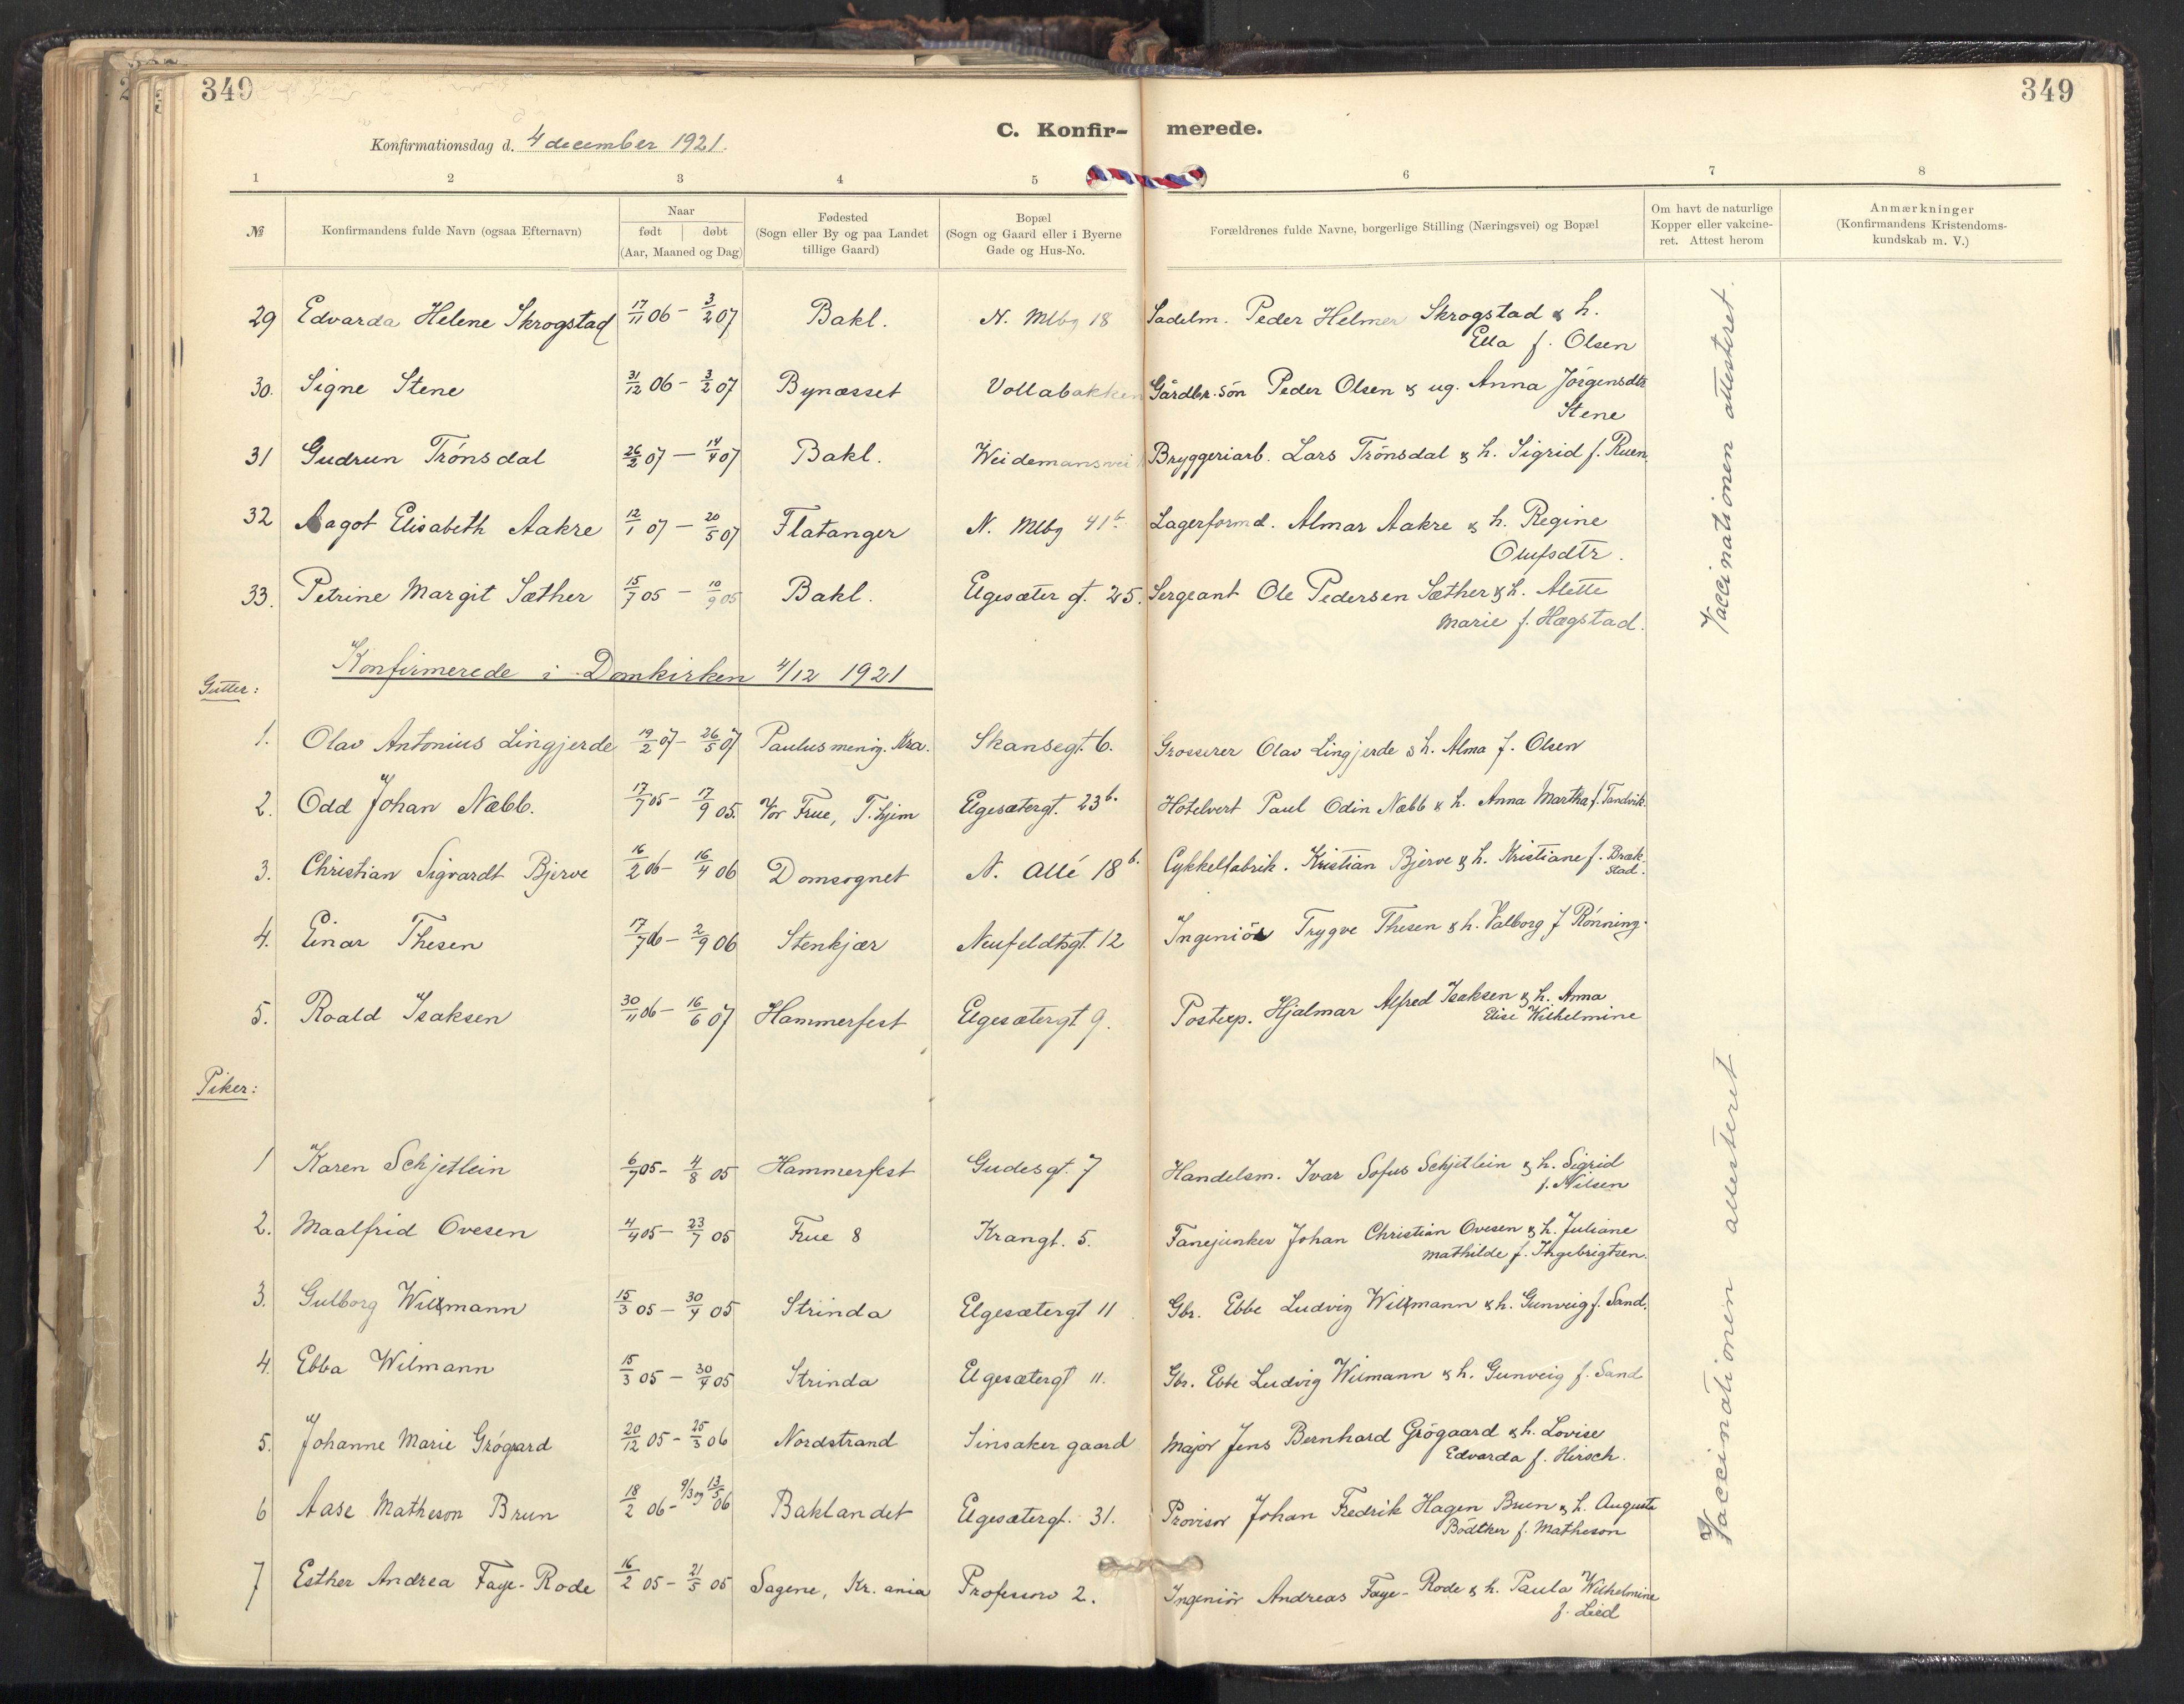 349 349
C. Konfir- merede.
Konfirmationsdag d. 4 december 1921.
1 2 3 4 5 6 7 8
№ Konfirmandens fulde Navn (ogsaa Efternavn) Naar født døbt (Aar, Maaned og Dag) Fødested (Sogn eller By og paa Landet tillige Gaard) Bopæl (Sogn og Gaard eller i Byerne Gade og Hus-No. Forældrenes fulde Navne, borgerlige Stilling (Næringsvei) og Bopæl Om havt de naturlige Kopper eller vakcineret. Attest herom Anmærkninger (Konfirmandens Kristendoms-kundskab m. V.)
29 Edvarda Helene Skrogstad 17/11 06 - 3/2 07 Bakl. N. Mlbg 18 Sadelm. Peder Helmer Skrogstad & h.
Ella f. Olsen
30. Signe Stene 31/12 06 - 3/2 07 Bynæsset Vollabakken Gårdbr. sön Peder Olsen & ug. Anna Jörgensdtr
Stene
31 Gudrun Trönsdal 26/2 07 - 14/4 07 Bakl. Weidemansvei Bryggeriarb. Lars Trönsdal & h. Sigrid f. Ruen.
32 Aagot Elisabeth Aakre 12/1 07 - 20/5 07 Flatanger N. Mlbg 41b Lagerformd. Almar Aakre & h. Regine
Olufsdtr.
33. Petrine Margit Sæther 15/7 05 - 10/9 05 Bakl. Elgesæter gt. 25. Sergeant Ole Pedersen Sæther & h. Alette
Marie f. Hægstad.
Vaccinationen attesteret.
Konfirmerede i Domkirken 4/12 1921
Gutter:
1. Olav Antonius Lingjerde 19/2 07 - 26/5 07 Paulus menig. Kra. Skansegt. 6. Grosserer Olav Lingjerde & h. Alma f. Olsen
2. Odd Johan Næbb. 17/7 05 - 17/9 05. Vor Frue, T.hjem Elgesætergt. 23b. Hotelvert Paul Odin Næbb & h. Anna Martha f. Tandvik.
3. Christian Sigvardt Bjerve 16/2 06 - 16/4 06 Domsognet N. Allé 18b. Cykkelfabrik. Kristian Bjerve & h. Kristiane f. Bræk-
stad.
4. Einar Thesen 17/7 06 - 2/9 06 Stenkjær Neufeldtsgt. 12 Ingeniör Trygve Thesen & h. Valborg f Rönning.
5. Roald Isaksen 30/11 06 - 16/6 07 Hammerfest Elgesætergt 9. Postexp. Hjalmar Alfred Isaksen & h. Anna
Elise Wilhelmine
Piker:
1 Karen Schjetlein 6/7 05 - 4/8 05 Hammerfest Gudesgt. 7 Handelsm. Ivar Sofus Schjetlein & h. Sigrid
f. Nilsen
2. Maalfrid Ovesen 4/4 05 - 23/7 05 Frue 8 Krangt. 5. Fanejunker Johan Christian Ovesen & h. Juliane
Mathilde f. Ingebrigtsen.
3. Gulborg Wilmann 15/3 05 - 30/4 05 Strinda Elgesætergt 11 Gbr. Ebbe Ludvig Wilmann & h. Gunveig f. Sand.
4. Ebba Wilmann 15/3 05 - 30/4 05 Strinda Elgesætergt 11. Gbr. Ebbe Ludvig Wilmann & h. Gunveig f. Sand
5. Johanne Marie Grögaard 20/12 05 - 25/3 06 Nordstrand Sinsaker gaard Major Jens Bernhard Grögaard & h. Lovise
Edvarda f. Hirsch.
6 Aase Matheson Brun 18/2 06 - 9/3 og 13/5 06 Baklandet Elgesætergt. 31. Provisor Johan Fredrik Hagen Brun & h. Augusta
Bödtker f. Matheson
7 Esther Andrea Faye-Rode 16/2 05 - 21/5 05 Sagene, Kr.ania Professorv 2. Ingeniör Andreas Faye-Rode & h. Paula Wilhelmine
f. Lied
Vaccinationen attesteret